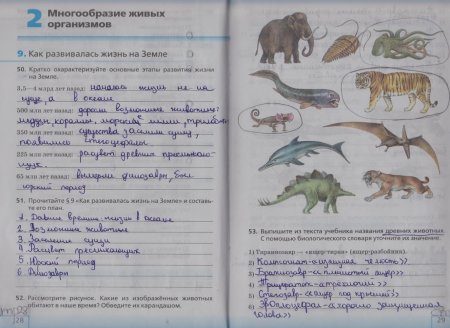 2 Многообразие живых
организмов
9. Как развивалась жизнь на Земле
50. Кратко охарактеризуйте основные этапы развития жизни
на Земле.
3,5—4 млрд лет назад: началась жизнь не на
суше, а в океане
500 млн лет назад: дорог
медузы, кораллы, морские лилии, трилобиты
существа заняли сушу,
появились стегоцефалы
225 млн лет назад: расцвет древних пресмыкаю-
щих
65 млн лет назад: вымерли динозавры, был
юрский период
51. Прочитайте § 9 «Как развивалась жизнь на Земле» и составь-
те его план.
1. Давние времена жизнь в океане
2. Возникли животные
3. Заселение суши
4. Расцвет пресмыкающих
5. Юрский период
6. Динозавры
52. Рассмотрите рисунок. Какие из изображённых животных
обитают в наше время? Обведите их карандашом.
28
53. Выпишите из текста учебника названия древних животных.
С помощью биологического словаря уточните их значение.
1) Тиранозавр — «ящер-тиран» («ящер-разбойник»).
2) челюсть»
3) Брахиозавр-
4)
5) Стегозавр- ящер крышей»
6)
голова»
29